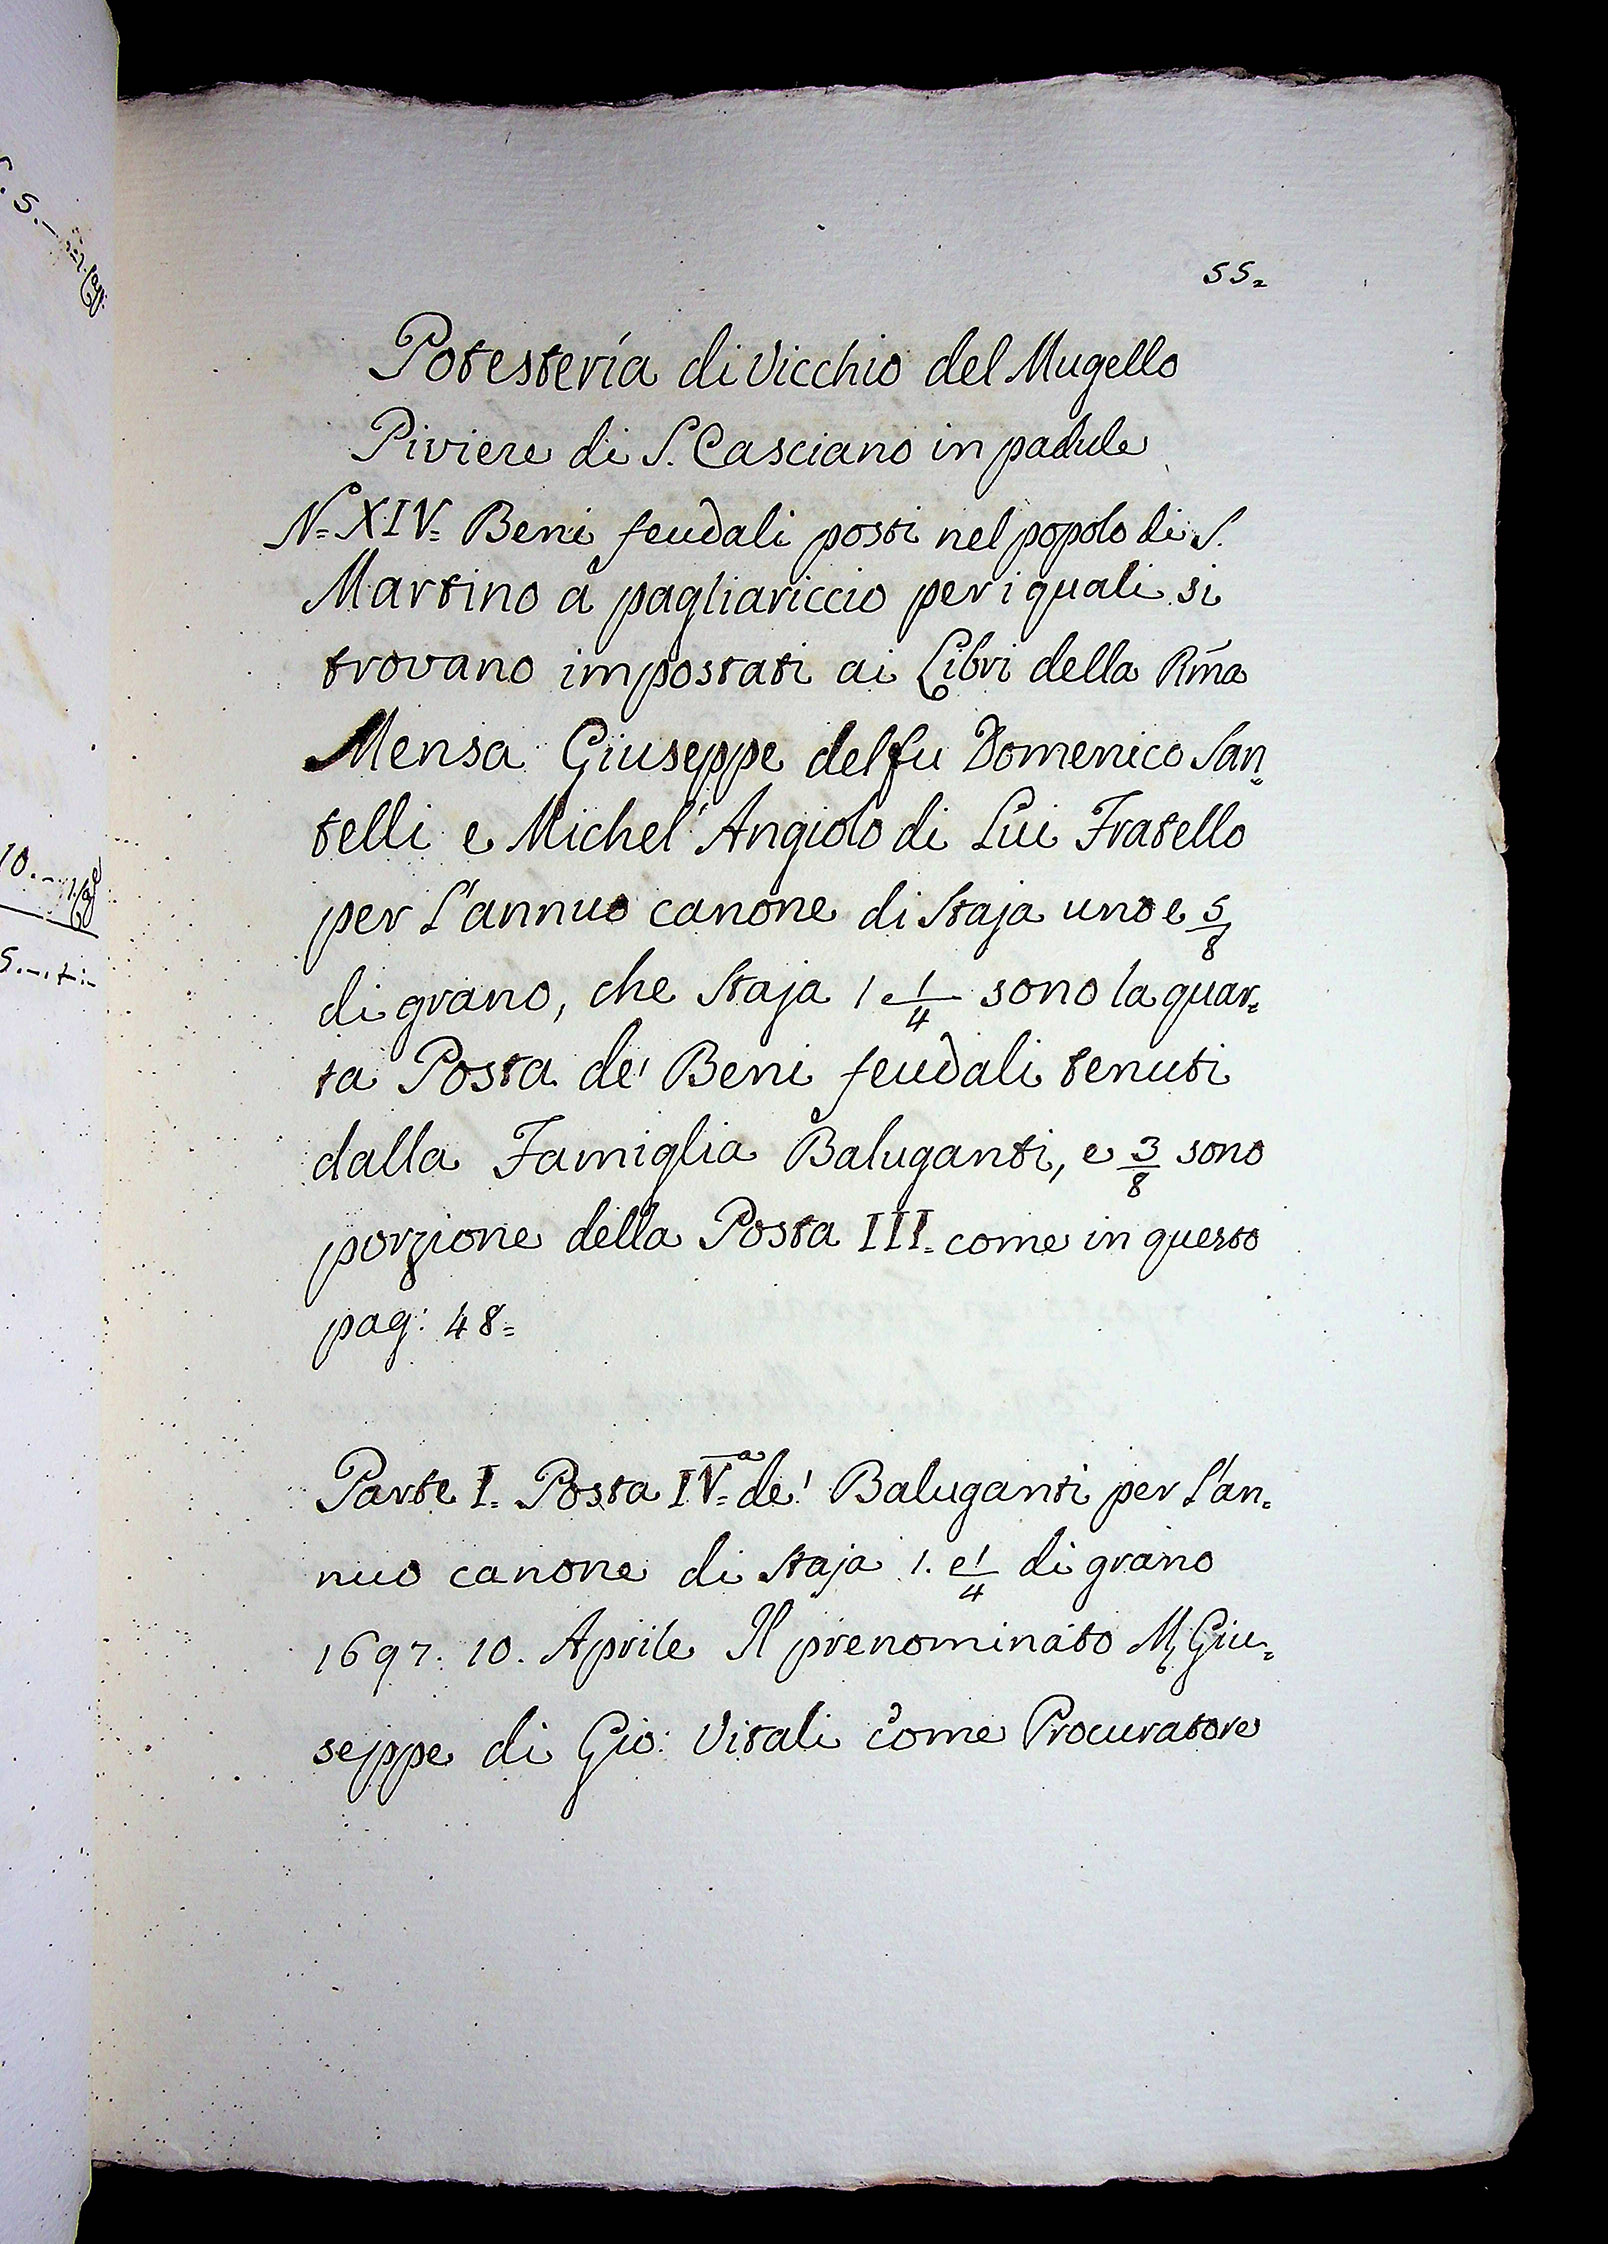 55=
Potestería di Vicchio del Mugello
Piviere di S. Casciano in padule
N.º XIV= Beni feudali posti nel popolo di S.
Martino à pagliariccio per i quali si
trovano impostati ai Libri della Rma
Mensa Giuseppe del fu Domenico San=
telli e Michel' Angiolo di Lui Fratello
per l'annuo canone di Staja uno e 5/8
di grano, che Staja 1 e 1/4 sono la quar=
ta Posta de' Beni feudali tenuti
dalla Famiglia Baluganti, e 3/8 sono
porzione della Posta III= come in questo
pag: 48=
Parte I= Posta IV=a de' Baluganti per l'an=
nuo canone di Staja 1. e 1/4 di grano
1697. 10. Aprile Il prenominato M, Giu=
seppe di Gio: Vitali come Procuratore